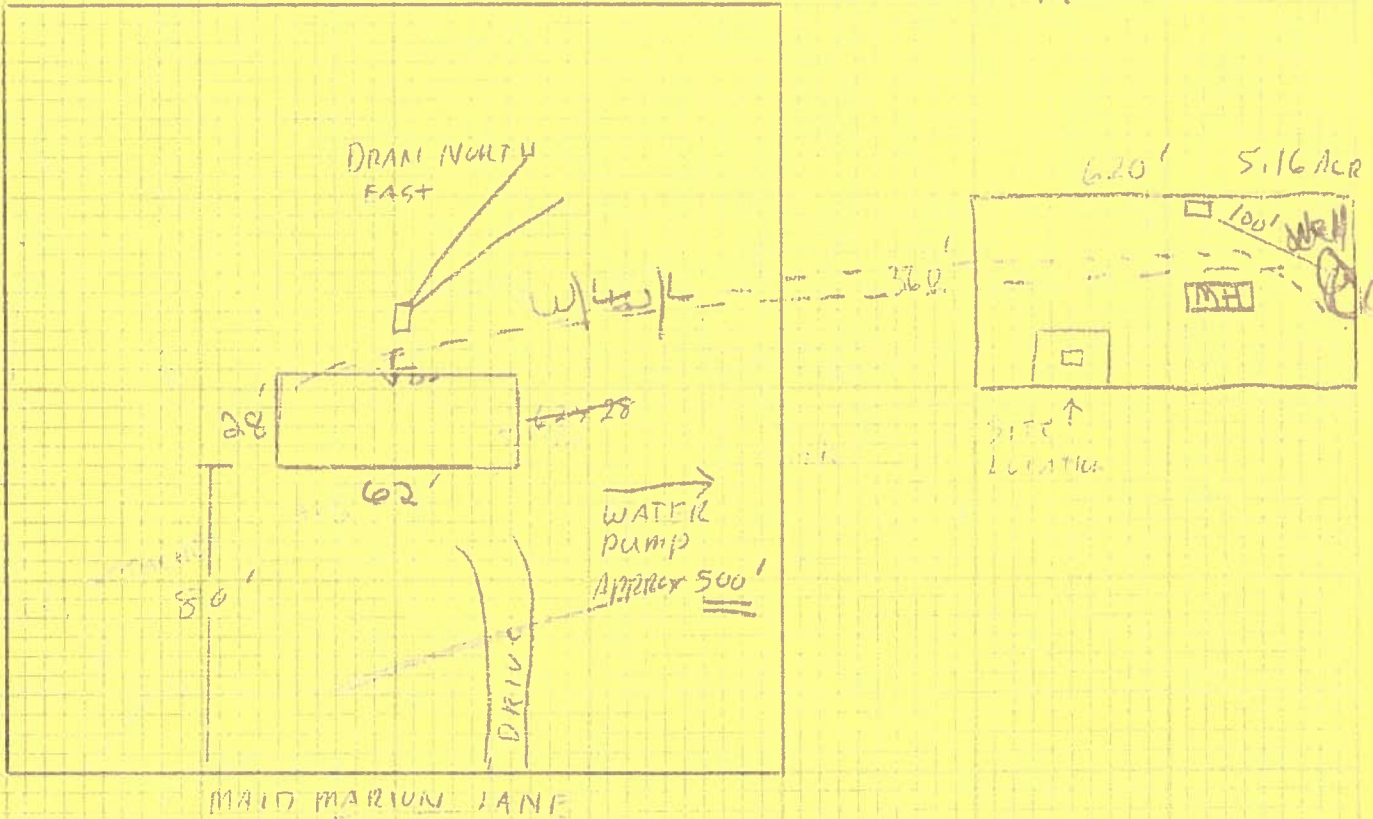 DRAN NORTH
EAST
W/L W/L
28'
62'
80'
WATER
PUMP
APPROX 500'
DRIVE
MAID MARION LANE
620'
5.16 ACR
360'
100'
Well
MH
SITE
LOCATION